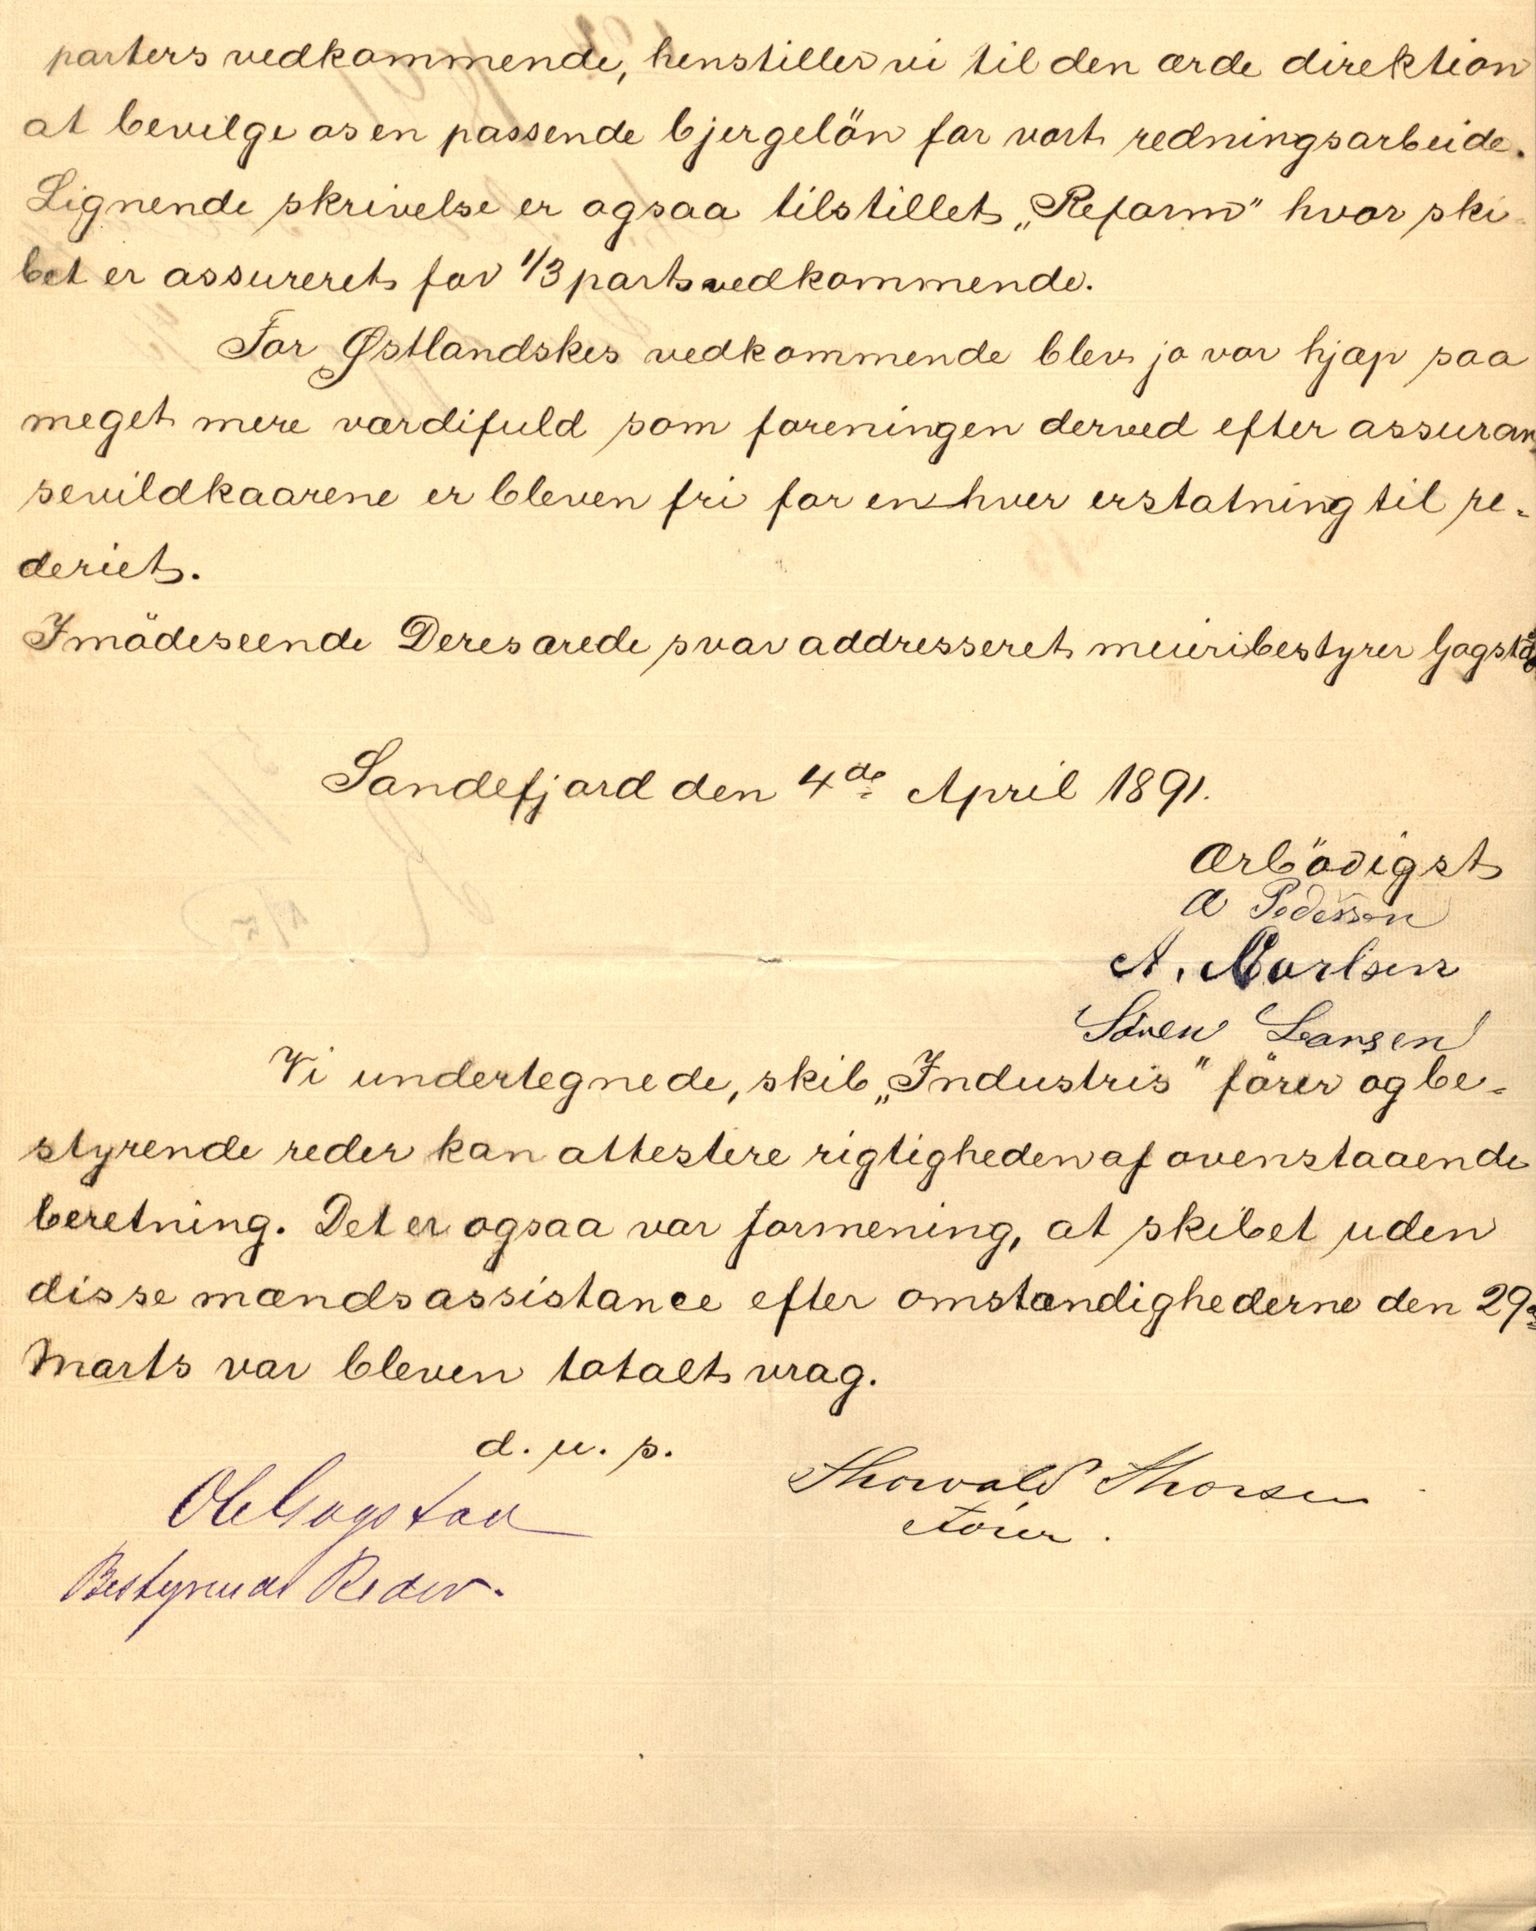 parters vedkommende, henstiller vi til den ærde direktion
at bevilge os en passende bjergelön for vort redningsarbeide.
Lignende skrivelse er ogsaa tilstillet „Reform" hvor ski
bet er assureret for 1/3 parts vedkommende.
For Østlandskes vedkommende blev jo vor hjæp saa
meget mere værdifuld som foreningen derved efter assuran
sevildkaarene er bleven fri for enhver erstatning til re-
deriet.
Imödeseende Deres ærede svar addresseret meieribestyrer Gogstad
Sandefjord den 4de April 1891.
Ærbödigst
A Pedersen
A. Carlsen
Sören Larsen
Vi undertegnede, skib „Industris" förer og be-
styrende reder kan attestere rigtigheden af ovenstaaende
beretning. Det er ogsaa vor formening, at skibet uden
disse mænds assistance efter omstændighederne den 29de
Marts var bleven totalt vrag.
d. u. s.
Ole Gogstad
Bestyrende Reder.
Thorvald Thorsen
Förer.